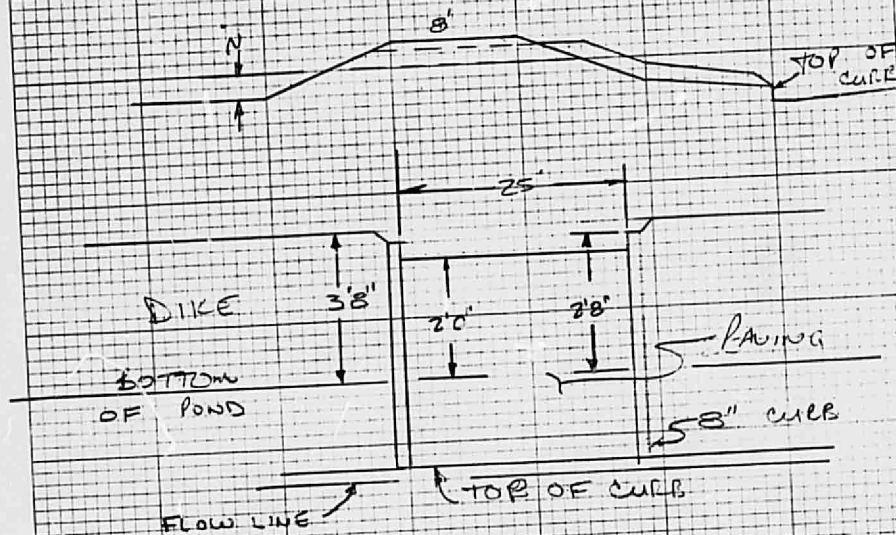 8'
N
TOP OF
CURB
25'
DIKE
3'8"
2'0"
2'8"
PAVING
BOTTOM
OF POND
8" CURB
TOP OF CURB
FLOW LINE